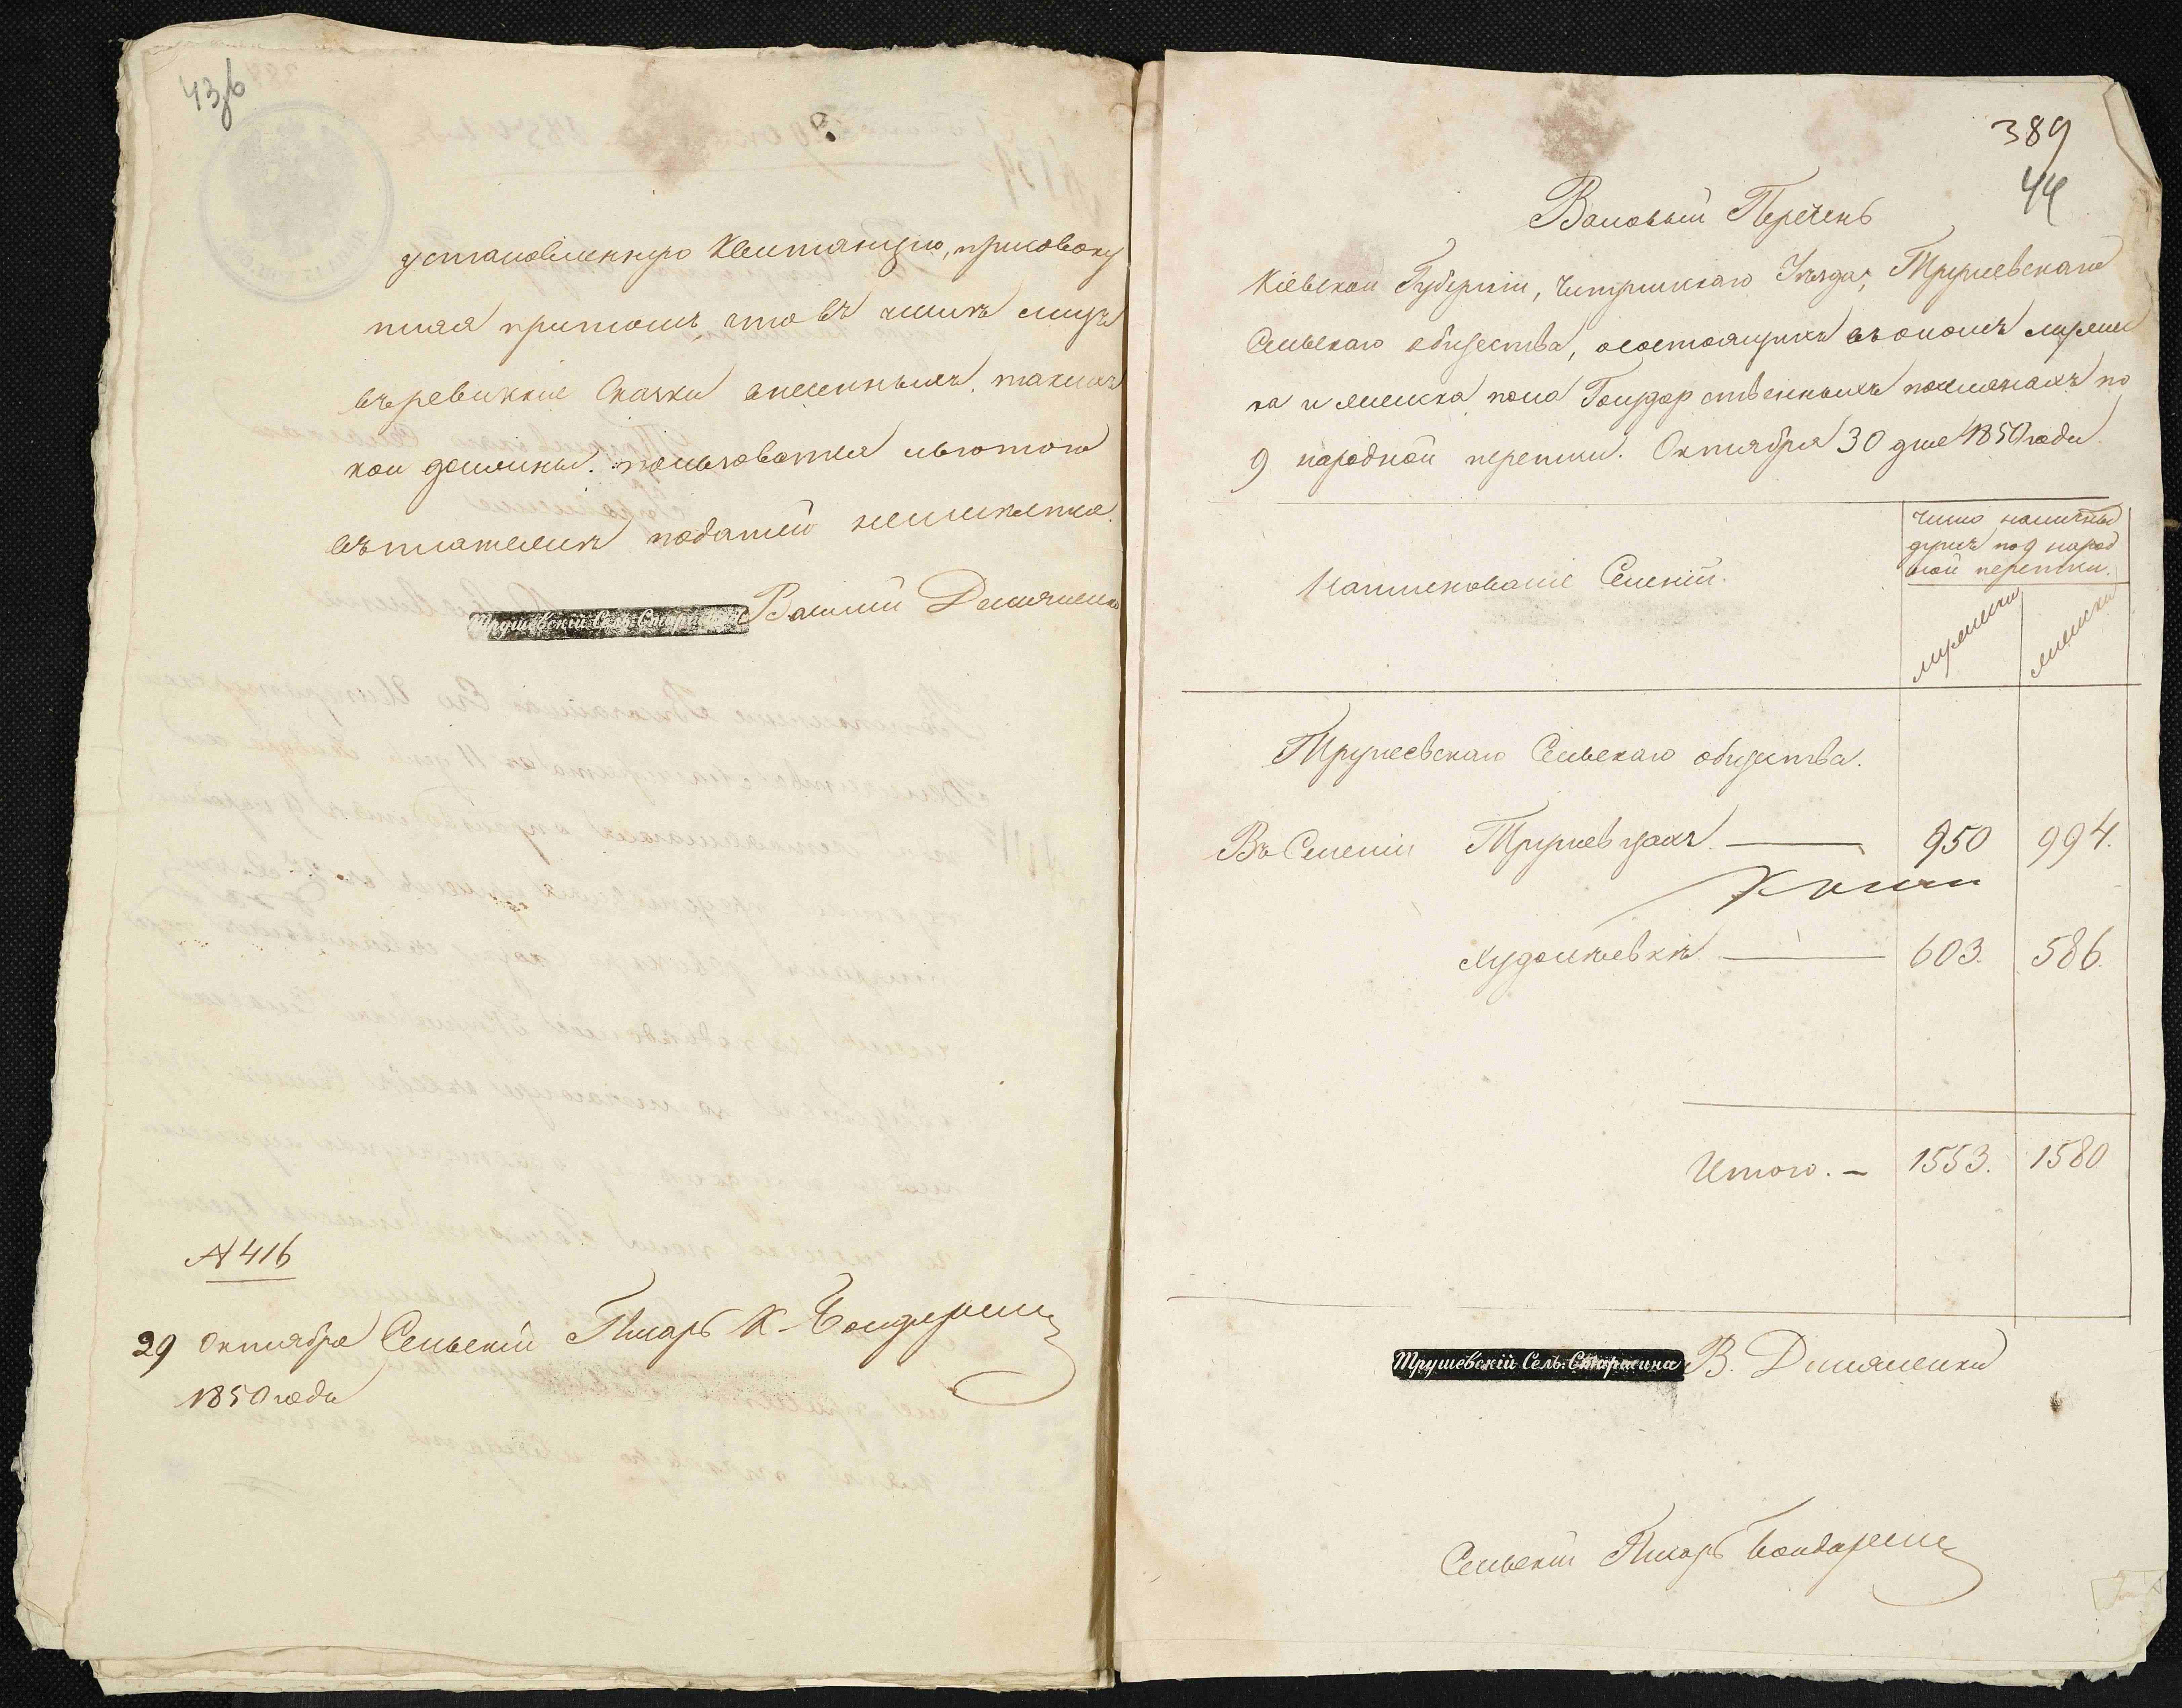 43об
установленную Квитанцию, присовоку
пляя притомъ что въ числѣ лицъ
въ ревизкіе сказки внесенныхъ, такихъ
кои должны пользоватся льготою
въ платежѣ податей неимѣется.
Трушевскій Сель: Старшина Василий Демяненко
№ 416
29 Октября Сельскій Писарь К. Бондаренко
1850 года
389
44
Валовый Перечень
Кіевской Губерніи, Чигринскаго Уѣзда, Трушевскаго
Сельскаго общества, о состоящихъ въ ономъ мужеск
ка и женска пола Государственныхъ поселянахъ по
9 народной переписи. Октября 30 дня 1850 года
Наименованіе Селеній.
число наличных
душъ по 9 народ
ной переписи.
мужеска
женска
Трушевскаго Сельскаго общества.
Въ Селеніи Трушевцахъ. — 950 994.
Худолѣевкѣ — 603. 586.
Итого. — 1553. 1580
Трушевскій Сель: Старшина В. Демяненко
Сельскій Писарь Бондаренко